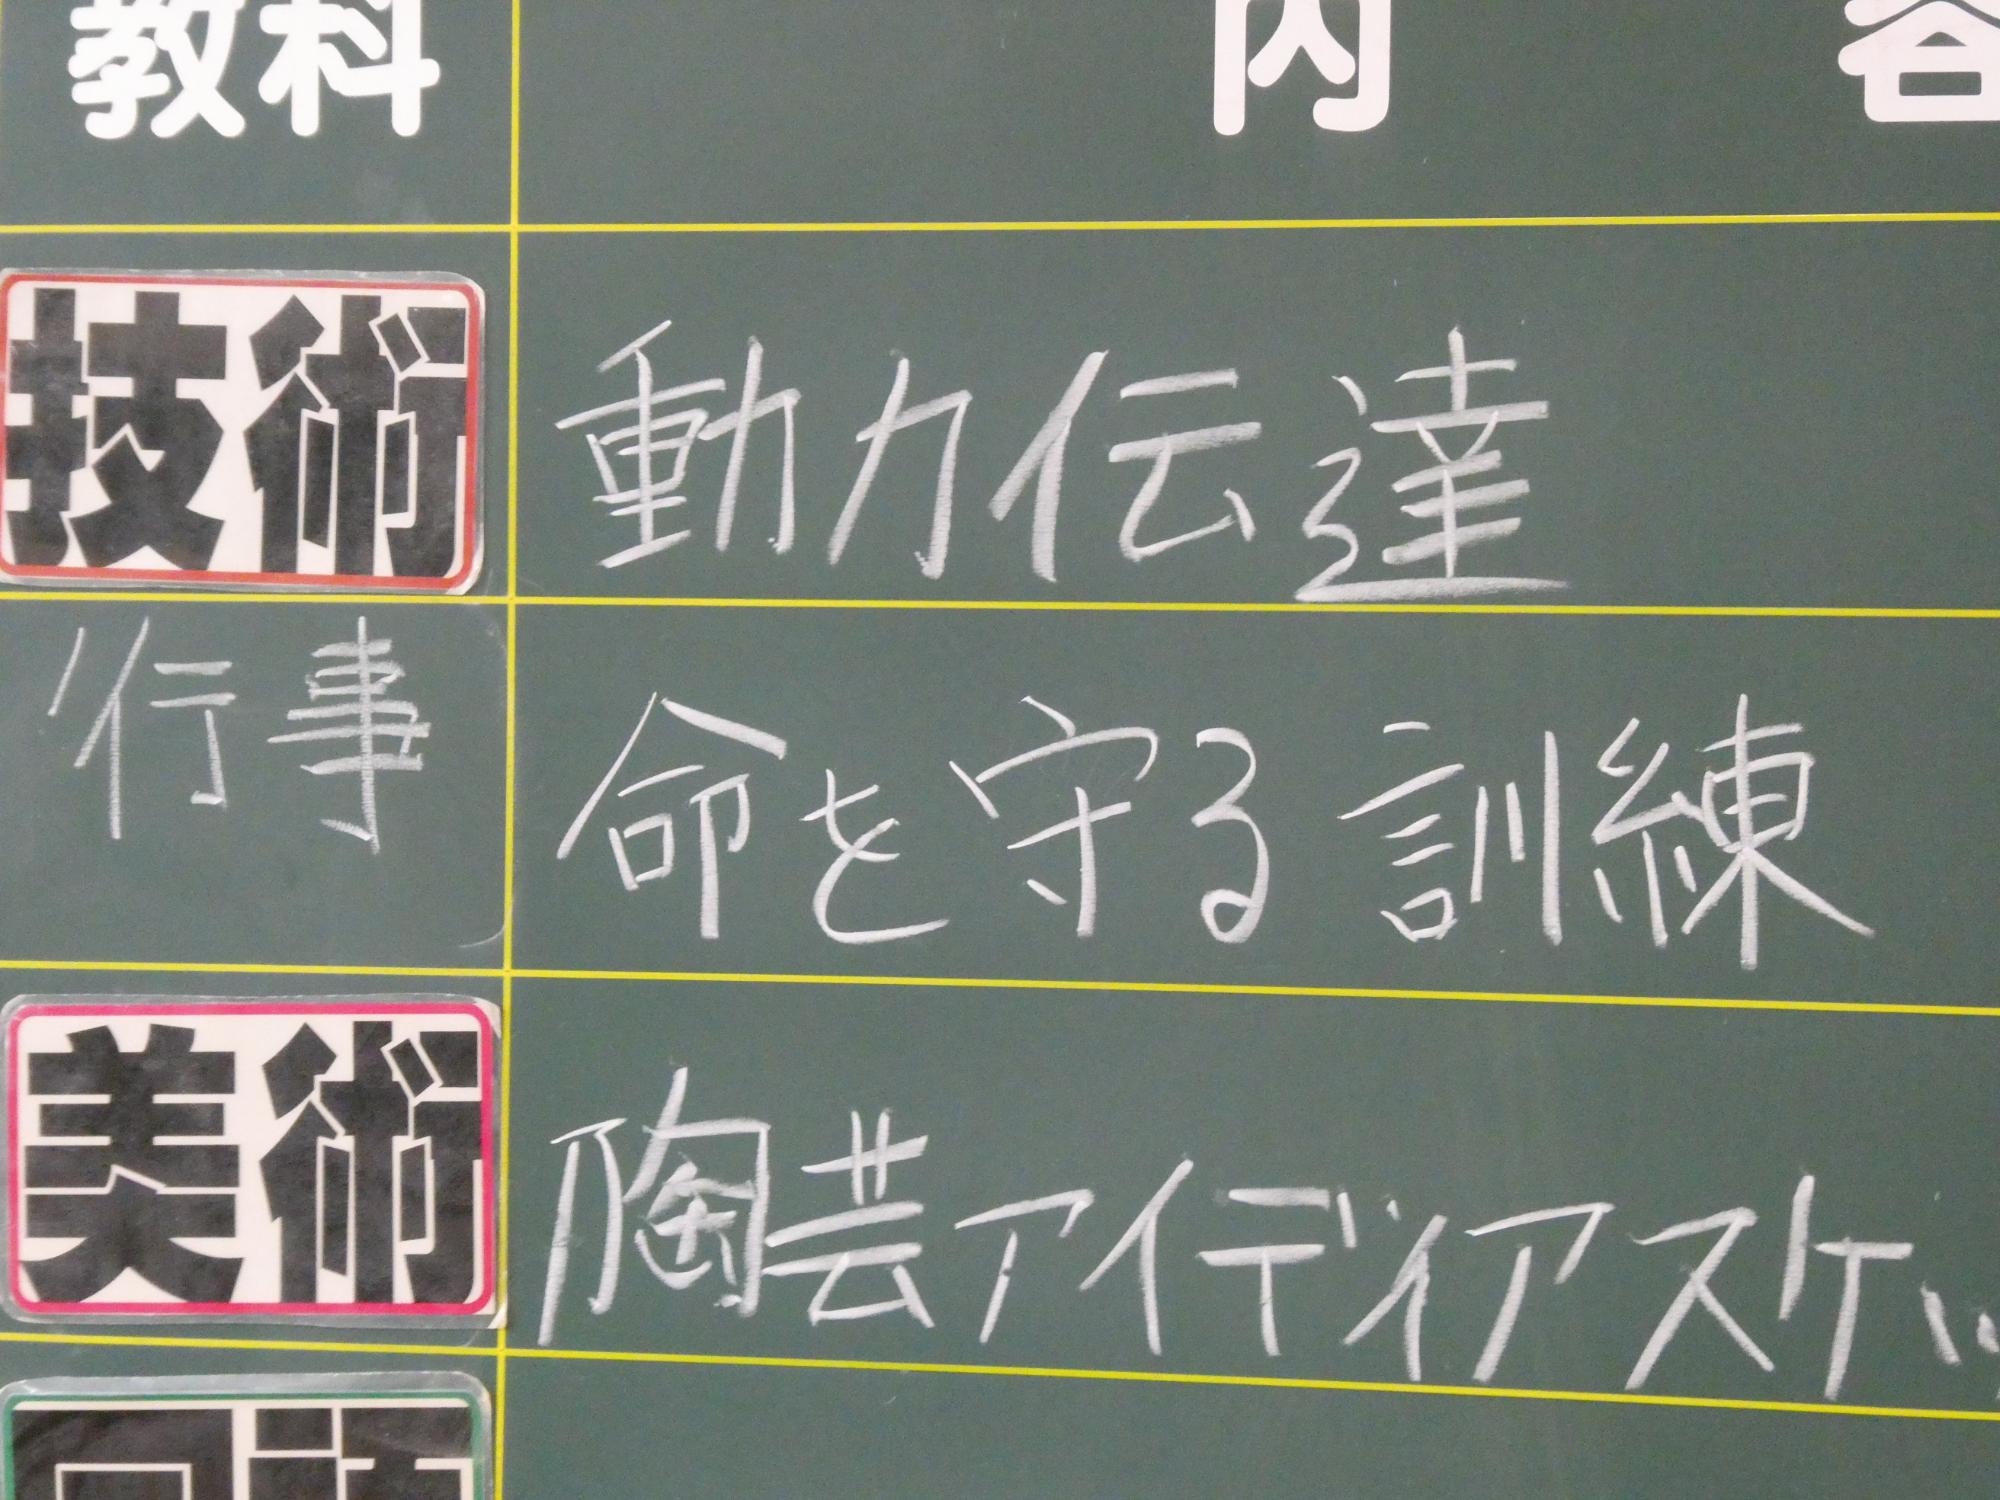 教科 内容
技術 動力伝達
行事 命を守る訓練
美術 陶芸アイディアスケッ